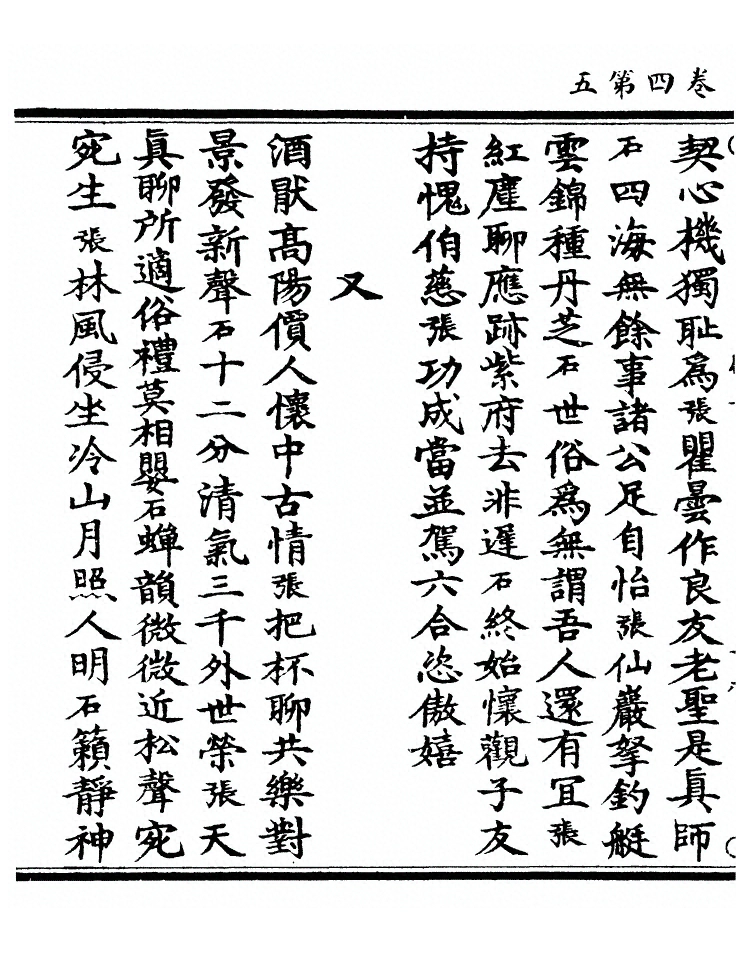 卷四第五
契心機獨恥爲張瞿曇作良友老聖是眞師
石四海無餘事諸公足自怡張仙巖拏釣艇
雲錦種丹芝石世俗爲無謂吾人還有冝張
紅塵聊應跡紫府去非遲石終始懷觀子友
持愧伯慈張功成當並駕六合恣傲嬉
又
酒猒高陽價人懷中古情張把杯聊共樂對
景發新聲石十二分清氣三千外世榮張天
眞聊所適俗禮莫相嬰石蟬韻微微近松聲宛
宛生張林風侵坐冷山月照人明石籟靜神